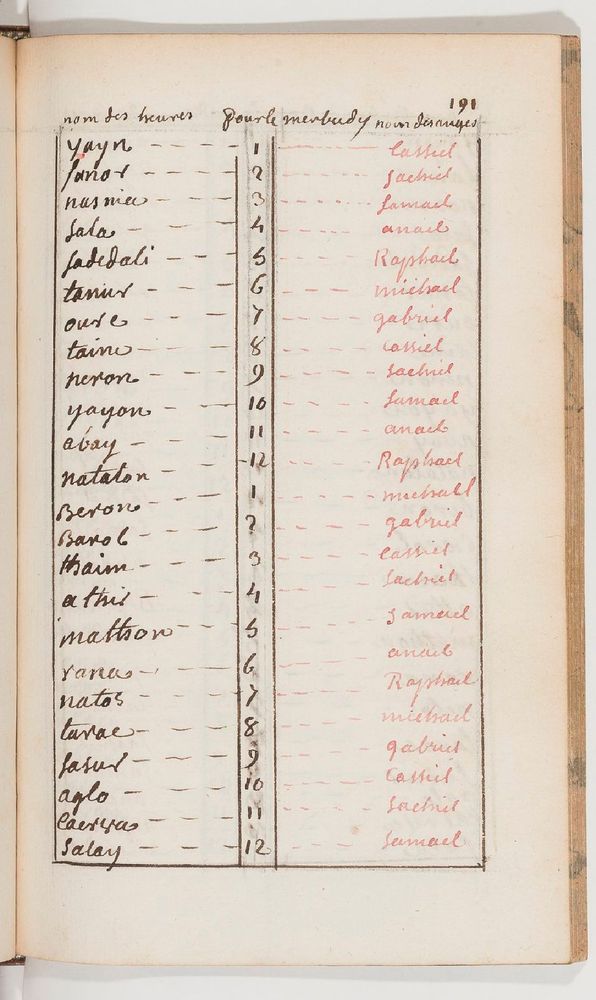 191
nom des heures pour le merkudy nom des anges
yayn 1 Cassiel
janor 2 sachiel
nasnia 3 samael
sala 4 anael
sadedali 5 Raphael
tamur 6 michael
oure 7 gabriel
taine 8 cassiel
neron 9 sachiel
yayon 10 samael
abay 11 anael
natalon 12 Raphael
Beron 1 michaell
Barol 2 gabriel
thaim 3 cassiel
athir 4 sachiel
mathon 5 samael
rana 6 anael
natos 7 Raphael
tarae 8 michael
sasur 9 gabriel
aglo 10 Cassiel
Caerra 11 sachiel
salay 12 samael